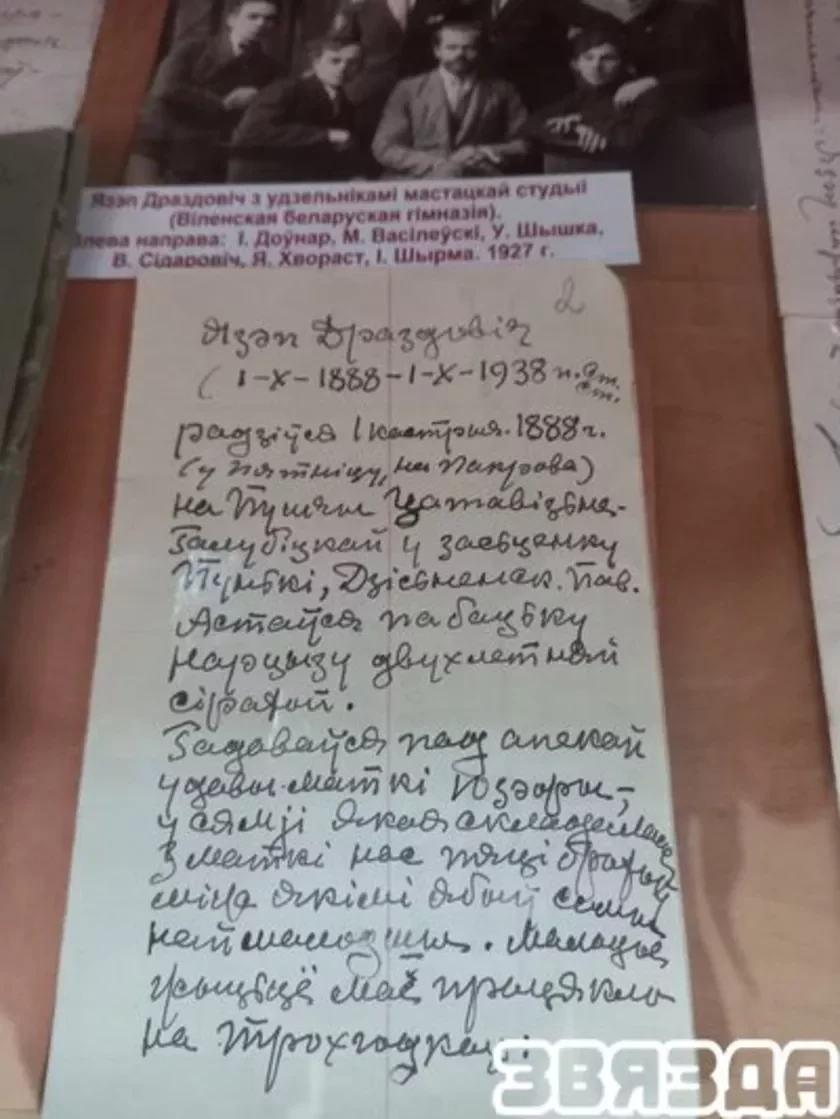 Язэп Драздовіч з удзельнікамі мастацкай студыі
(Віленская беларуская гімназія).
злева направа: І. Доўнар, М. Васілеўскі, У. Шышка,
В. Сідаровіч, Я. Хвораст, І. Шырма. 1927 г.
2
Язэп Драздовіч
(1-X-1888-1-X-1938 н.
радзіўся 1 кастрыч. 1888 г.
(у пятніцу, на Пакрова)
на
Галубіцкай у засьценку
Пунькі, Дзісьненск. пав.
Астаўся па бацьку
Нарцызу двухлетняй
сіратой.
Гадаваўся пад апекай
удавы-маткі Юзэфы,
у сямʼі якая складалася
З маткі нас пяці братоў
між якімі я быў самы
наймалодшы. Маленца
маё
на трохгодкаў.
ЗВЯЗДА